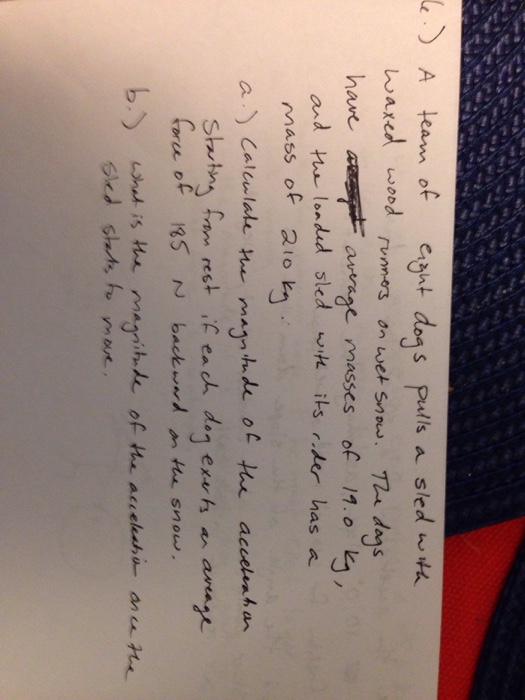 6.) A team of eight dogs pulls a sled with
waxed wood runners on wet snow. The dogs
have average masses of 19.0 kg,
and the loaded sled with its rider has a
mass of 210 kg.
a.) Calculate the magnitude of the acceleration
starting from rest if each dog exerts an average
force of 185 N backward on the snow.
b.) What is the magnitude of the acceleration once the
sled starts to move.